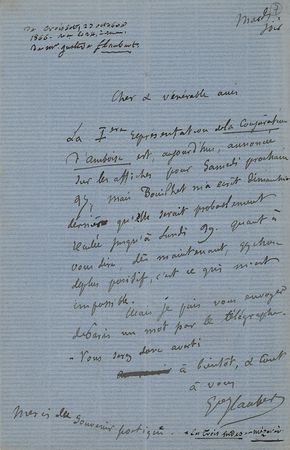 Mardi
soir
De Croisset, 23 octobre
1866.
De mr gustave flaubert
Cher & vénérable ami
La 1ère représentation de la Conjuration
d'amboise est, aujourd'hui, annoncée
sur les affiches pour Samedi prochain
27, mais Bouilhet m'a écrit Dimanche
dernier qu'elle serait probablement
reculée jusqu'à Lundi 29. quant à
vous dire, dès maintenant, qq chose
de plus positif, c'est ce qui m'est
impossible.
Mais je puis vous envoyer
de Paris un mot par le télégraphe.
- Vous serez donc averti
à bientôt, & tout
à vous
Gve Flaubert
Merci du Souvenir poétique.